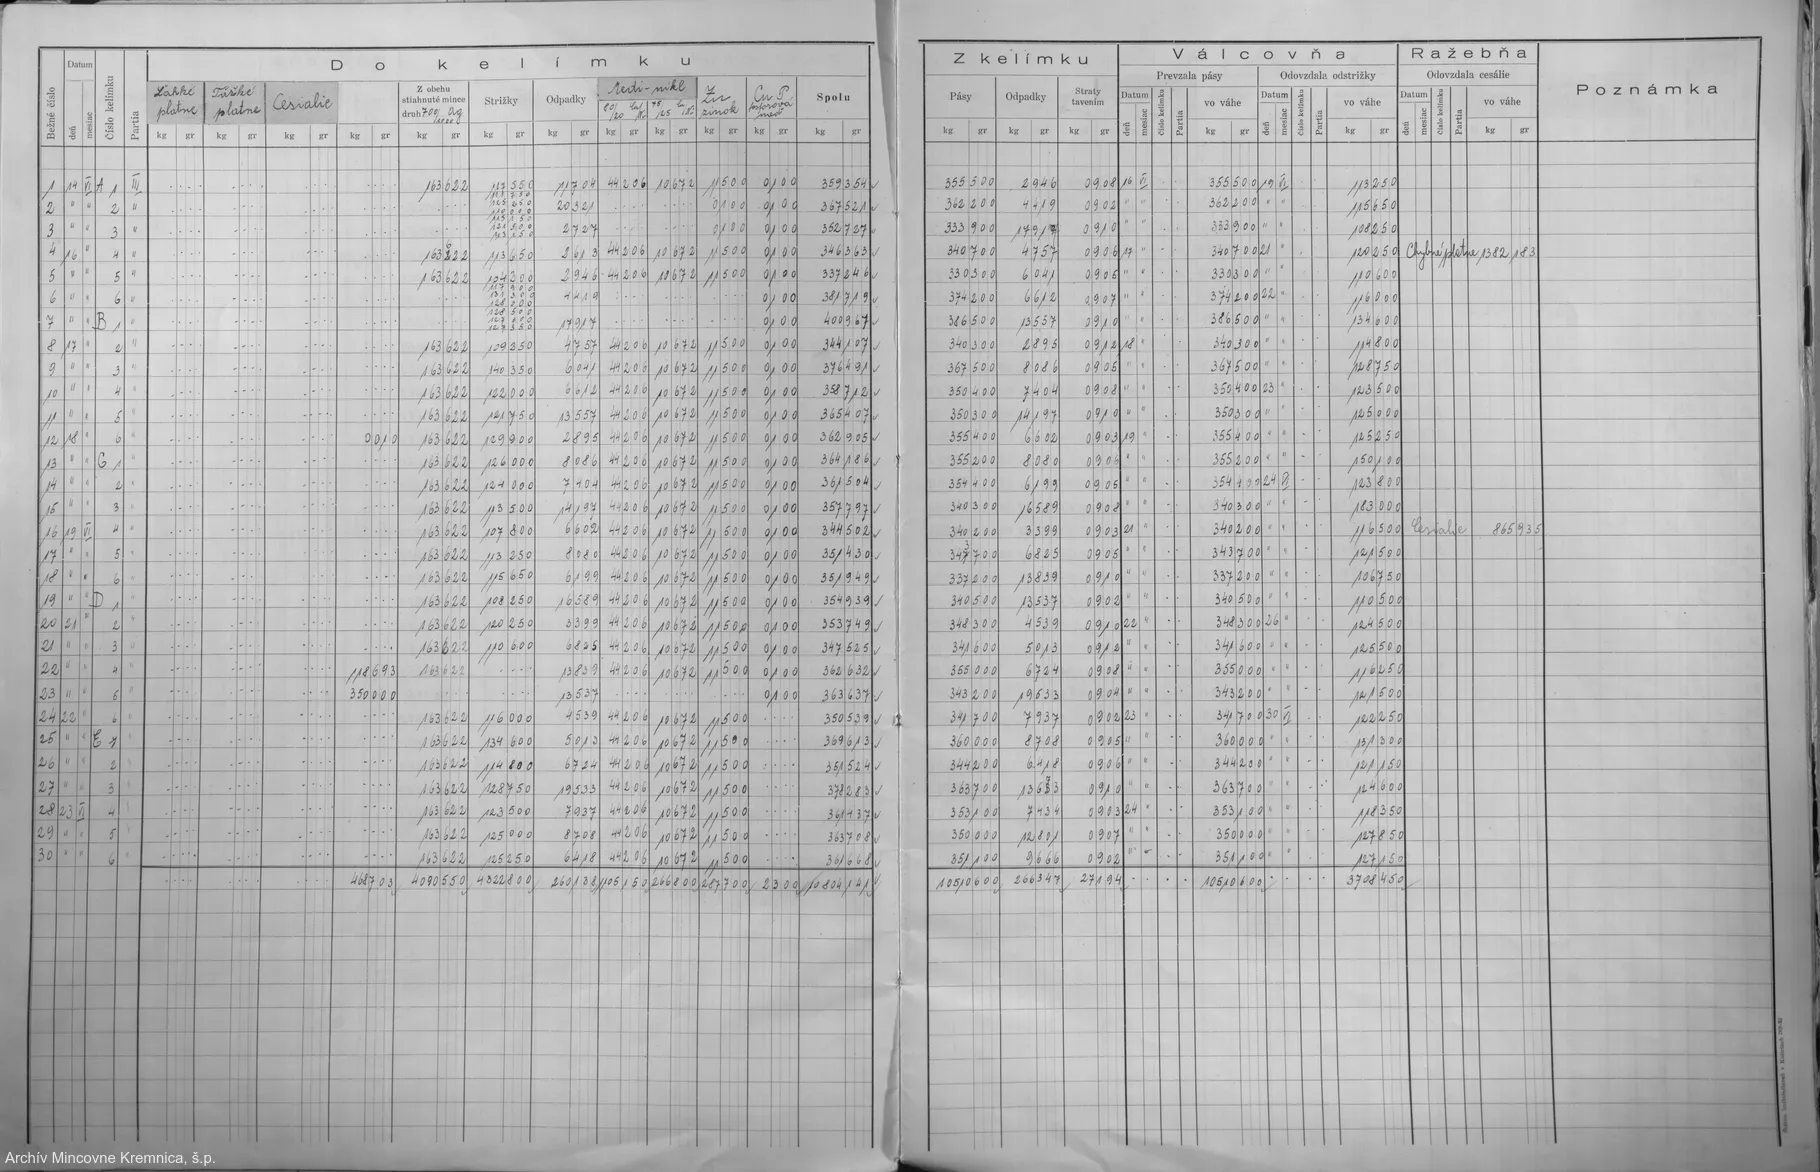 Do kelímku
Bežné číslo
Datum
deň
mesiac
Číslo kelímku
Partia
Ľahké platne
Ťažké platne
Cesialie
Z obehu stiahnuté mince druh 700/1000 Ag
Strižky
Odpadky
Medi-nikl
Zn zinok
Cu P fosforová meď
Spolu
kg gr
1 14 VI A 1 III 163 622 117 550 11 704 44 206 10 672 11 500 0 100 359 354
2 " " 2 " 20 321 0 100 0 100 367 521
3 " " 3 " 2 727 0 100 0 100 352 727
4 16 " 4 " 113 650 2 613 44 206 10 672 11 500 0 100 346 363
5 " " 5 " 163 622 104 300 2 946 44 206 10 672 11 500 0 100 337 246
6 " " 6 " 4 419 0 100 381 719
7 " " B 1 " 17 917 0 100 400 967
8 17 " 2 " 163 622 109 250 4 757 44 206 10 672 11 500 0 100 344 107
9 " " 3 163 622 140 350 6 041 44 206 10 672 11 500 0 100 376 491
10 " " 4 163 622 122 000 6 612 44 206 10 672 11 500 0 100 358 712
11 " " 5 163 622 121 750 13 557 44 206 10 672 11 500 0 100 365 407
12 18 " 6 0 010 163 622 129 900 2 895 44 206 10 672 11 500 0 100 362 905
13 " " C 1 163 622 126 000 8 086 44 206 10 672 11 500 0 100 364 186
14 " " 2 163 622 124 000 7 404 44 206 10 672 11 500 0 100 361 504
15 " " 3 163 622 113 500 14 197 44 206 10 672 11 500 0 100 357 797
16 19 VI 4 163 622 107 800 6 602 44 206 10 672 11 500 0 100 344 502
17 " " 5 163 622 113 250 8 080 44 206 10 672 11 500 0 100 351 430
18 " " 6 163 622 115 650 6 199 44 206 10 672 11 500 0 100 351 949
19 " " D 1 163 622 108 250 16 589 44 206 10 672 11 500 0 100 354 939
20 21 " 2 163 622 120 250 3 399 44 206 10 672 11 500 0 100 353 749
21 " " 3 163 622 110 600 6 825 44 206 10 672 11 500 0 100 347 525
22 " " 4 118 693 163 622 13 839 44 206 10 672 11 500 0 100 362 632
23 " " 5 350 000 13 537 0 100 363 637
24 22 " 6 163 622 116 000 4 539 44 206 10 672 11 500 350 539
25 " " E 1 163 622 134 600 5 013 44 206 10 672 11 500 369 613
26 " " 2 163 622 114 800 6 724 44 206 10 672 11 500 351 524
27 " " 3 163 622 128 750 19 533 44 206 10 672 11 500 378 283
28 23 VI 4 163 622 123 500 7 937 44 206 10 672 11 500 361 437
29 " " 5 163 622 125 000 8 708 44 206 10 672 11 500 363 708
30 " " 6 163 622 125 250 6 418 44 206 10 672 11 500 361 668
468 703 4090 550 4322 800 260 138 1105 150 266 800 287 700 2 300 10804 141
Z kelímku
Válcovňa
Ražebňa
Poznámka
Pásy
Odpadky
Straty tavením
Prevzala pásy
Odovzdala odstrižky
Odovzdala cesálie
Datum
deň
mesiac
číslo kelímku
Partia
vo váhe
kg gr
355 500 2 946 0 908 16 VI 355 500 19 VI 113 250
362 200 4 419 0 902 " " 362 200 " " 115 650
333 900 17 917 0 910 " " 333 900 " " 108 250
340 700 4 757 0 906 17 " 340 700 21 " 120 250 Chybné platne 1382,183
330 300 6 041 0 905 " " 330 300 " " 110 600
374 200 6 612 0 907 " " 374 200 22 " 116 000
386 500 13 557 0 910 " " 386 500 " " 134 600
340 300 2 895 0 912 18 " 340 300 " " 114 800
367 500 8 086 0 905 " " 367 500 " " 128 750
350 400 7 404 0 908 " " 350 400 23 " 123 500
350 300 14 197 0 910 " " 350 300 " " 125 000
355 400 6 602 0 903 19 " 355 400 " " 125 250
355 200 8 080 0 906 " " 355 200 " " 150 100
354 400 6 199 0 905 " " 354 400 24 VI 123 800
340 300 16 589 0 908 " " 340 300 " " 183 000
340 200 3 399 0 903 21 " 340 200 " " 116 500 Cesialie 865 935
343 700 6 825 0 905 " " 343 700 " " 121 500
337 200 13 839 0 910 " " 337 200 " " 106 750
340 500 13 537 0 902 " " 340 500 " " 110 500
348 300 4 539 0 910 22 " 348 300 26 " 124 500
341 600 5 013 0 912 " " 341 600 " " 125 500
355 000 6 724 0 908 " " 355 000 " " 116 250
343 200 19 533 0 904 " " 343 200 " " 121 500
341 700 7 937 0 902 23 " 341 700 30 VI 122 250
360 000 8 708 0 905 " " 360 000 " " 131 300
344 200 6 418 0 906 " " 344 200 " " 121 150
363 700 0 910 " " 363 700 " " 124 600
353 100 7 434 0 903 24 " 353 100 " " 118 350
350 000 12 801 0 907 " " 350 000 " " 127 850
351 100 9 666 0 902 " " 351 100 " " 127 150
10510 600 266 347 27 194 10510 600 3708 450
Archív Mincovne Kremnica, š.p.